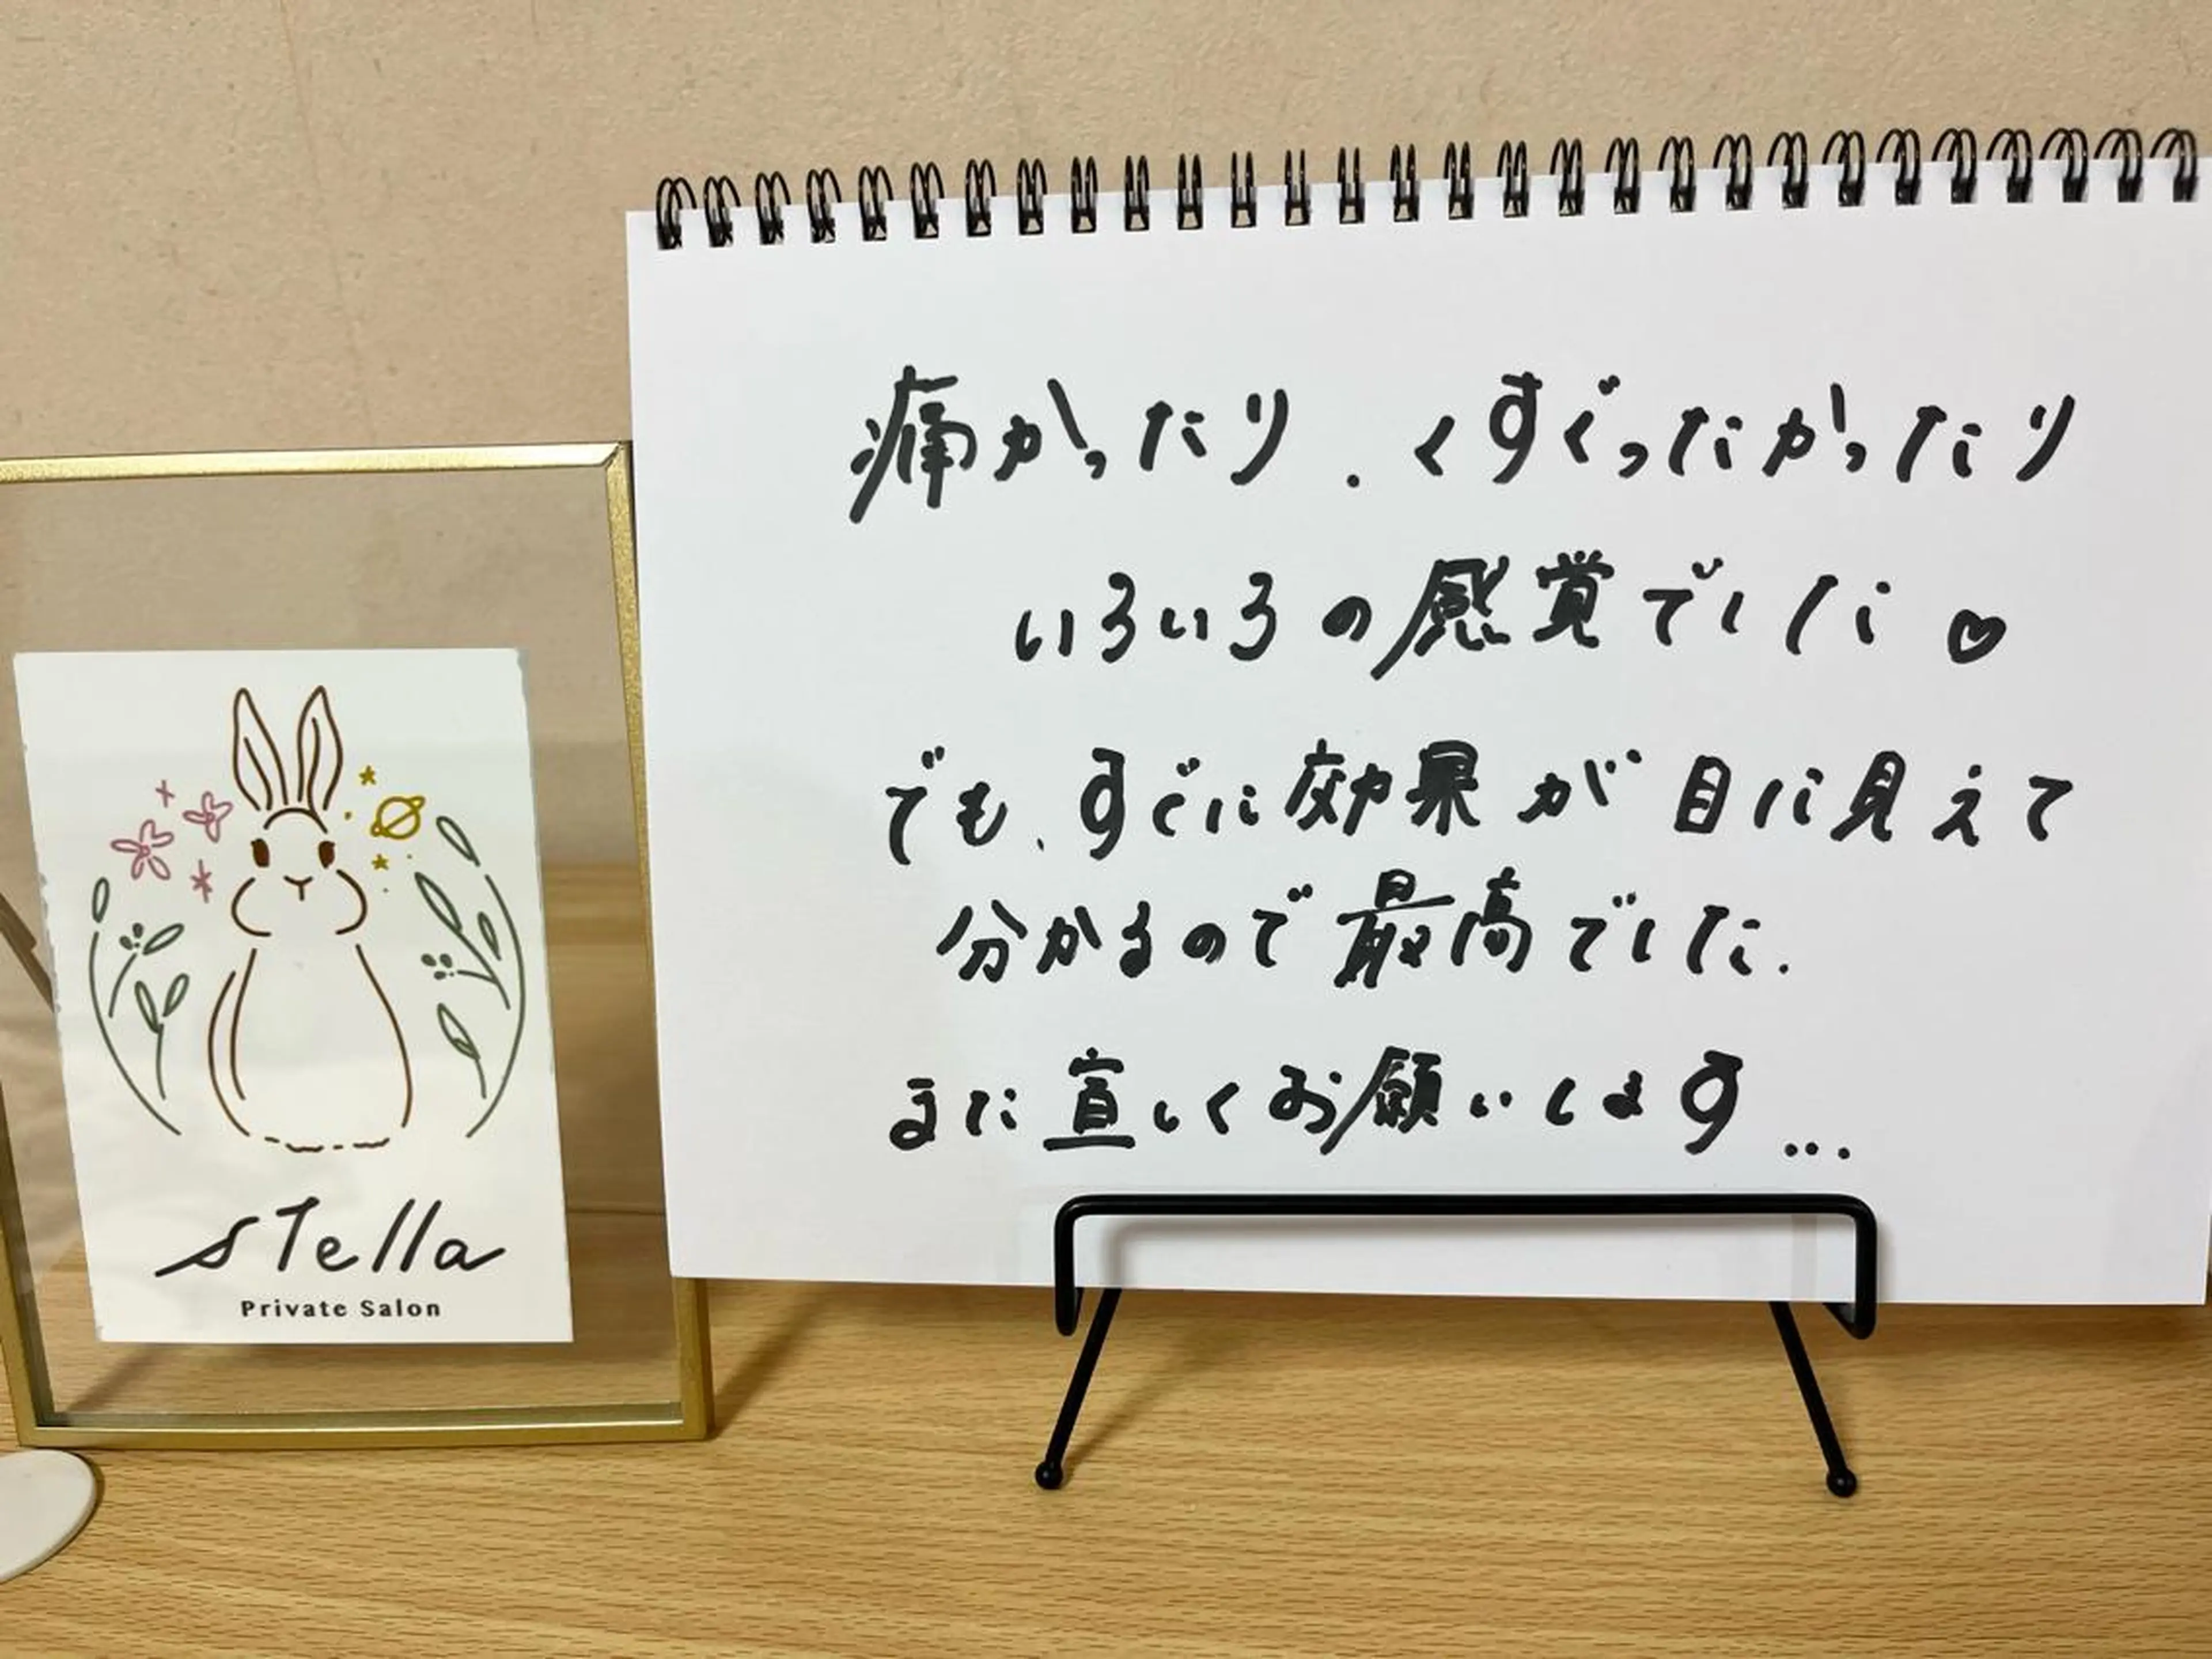 stella
Private Salon
痛かったり、くすぐったかったり
いろいろの感覚でした♡
でも、すぐに効果が目に見えて
分かるので最高でした.
また宜しくお願いします...